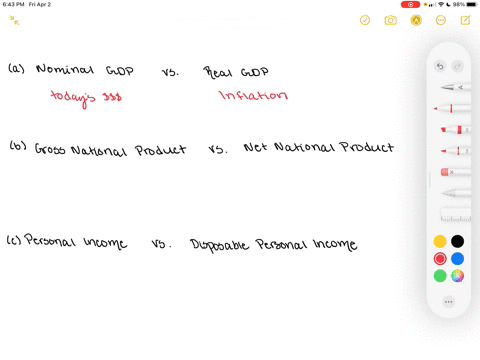 6:43 PM Fri Apr 2
98%
(a) Nominal GDP vs. Real GDP
today's $$$ Inflation
(b) Gross National Product vs. Net National Product
(c) Personal Income vs. Disposable Personal Income